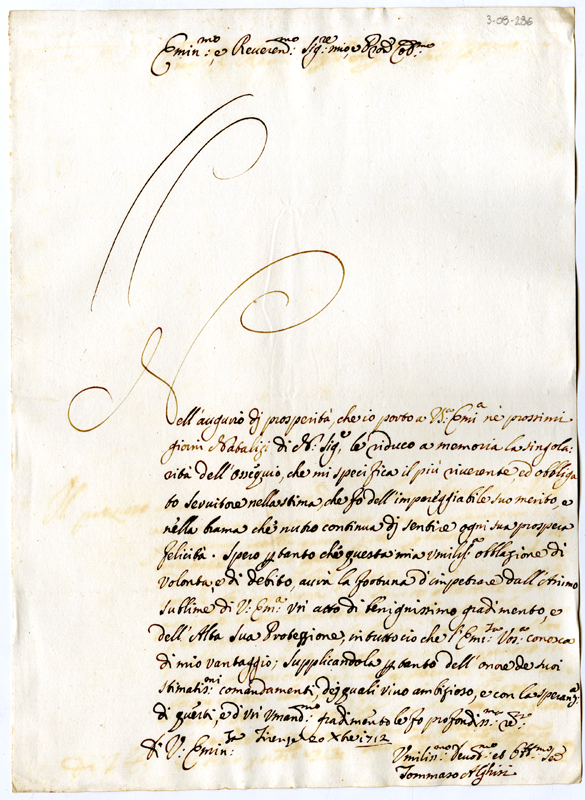 3-08-286
Emin:mo e Reverend:mo Sig:re mio, e Pron Col:mo
Nell'augurio dj prosperità, che io porto a V:ra Emi:a ne prossimi
giorni Natalizj di N: Sig:re le riduco a memoria la singola:
rità dell'ossequio, che mi specifica il più riverente, ed obbliga
to servitore nella stima, che fo dell'impareggiabile suo merito, e
nella brama che nutro continua dj sentire ogni sua prospera
felicità. Spero tanto che questa mia umiliss:a oblazione di
volontà, e di debito, avrà la fortuna d'impetrare dall'Animo
sublime di V: Em:a un atto di benignissimo gradimento, e
dell'Alta Sua Protezzione, in tutto ciò che l'Emi:za Vos:a conosca
di mio vantaggio; supplicandola tanto dell'onore de suoi
stimatis:mi comandamenti, dej quali vivo ambizioso, e con la speranza
di questi, e d'un uman:mo gradimento le fo profondis:ma
di V: Emin:za Firenze 20 Xbre 1712
Umilis:mo Devot:mo et Obb:mo
Tommaso Alghisi